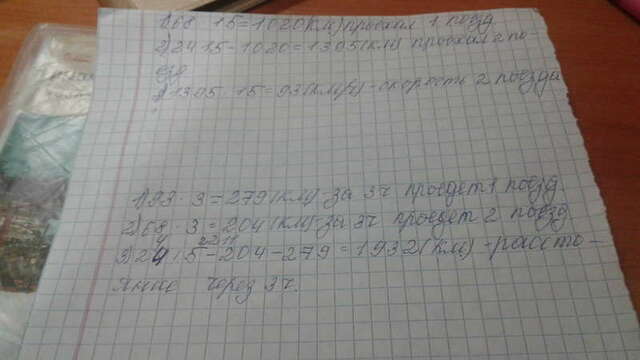 1)68 · 15=1020(км)проехал 1 поезд
2)2415-1020=1395(км) проехал 2 по-
езд
3)1395:15=93(км/ч)-скорость 2 поезда
1)93 · 3=279(км)-за 3ч проедет 1 поезд
2)68 · 3=204(км)-за 3ч проедет 2 поезд
3)2415-204-279=1932(км)-рассто-
яние через 3ч.